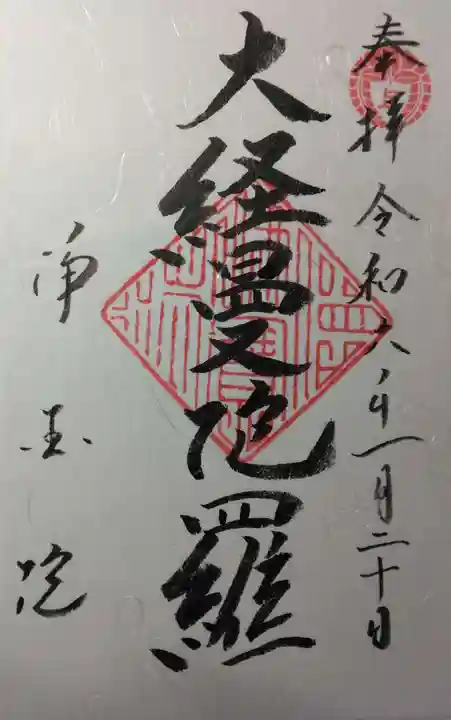 奉拝 令和六年一月二十日
大経曼陀羅
浄玉院